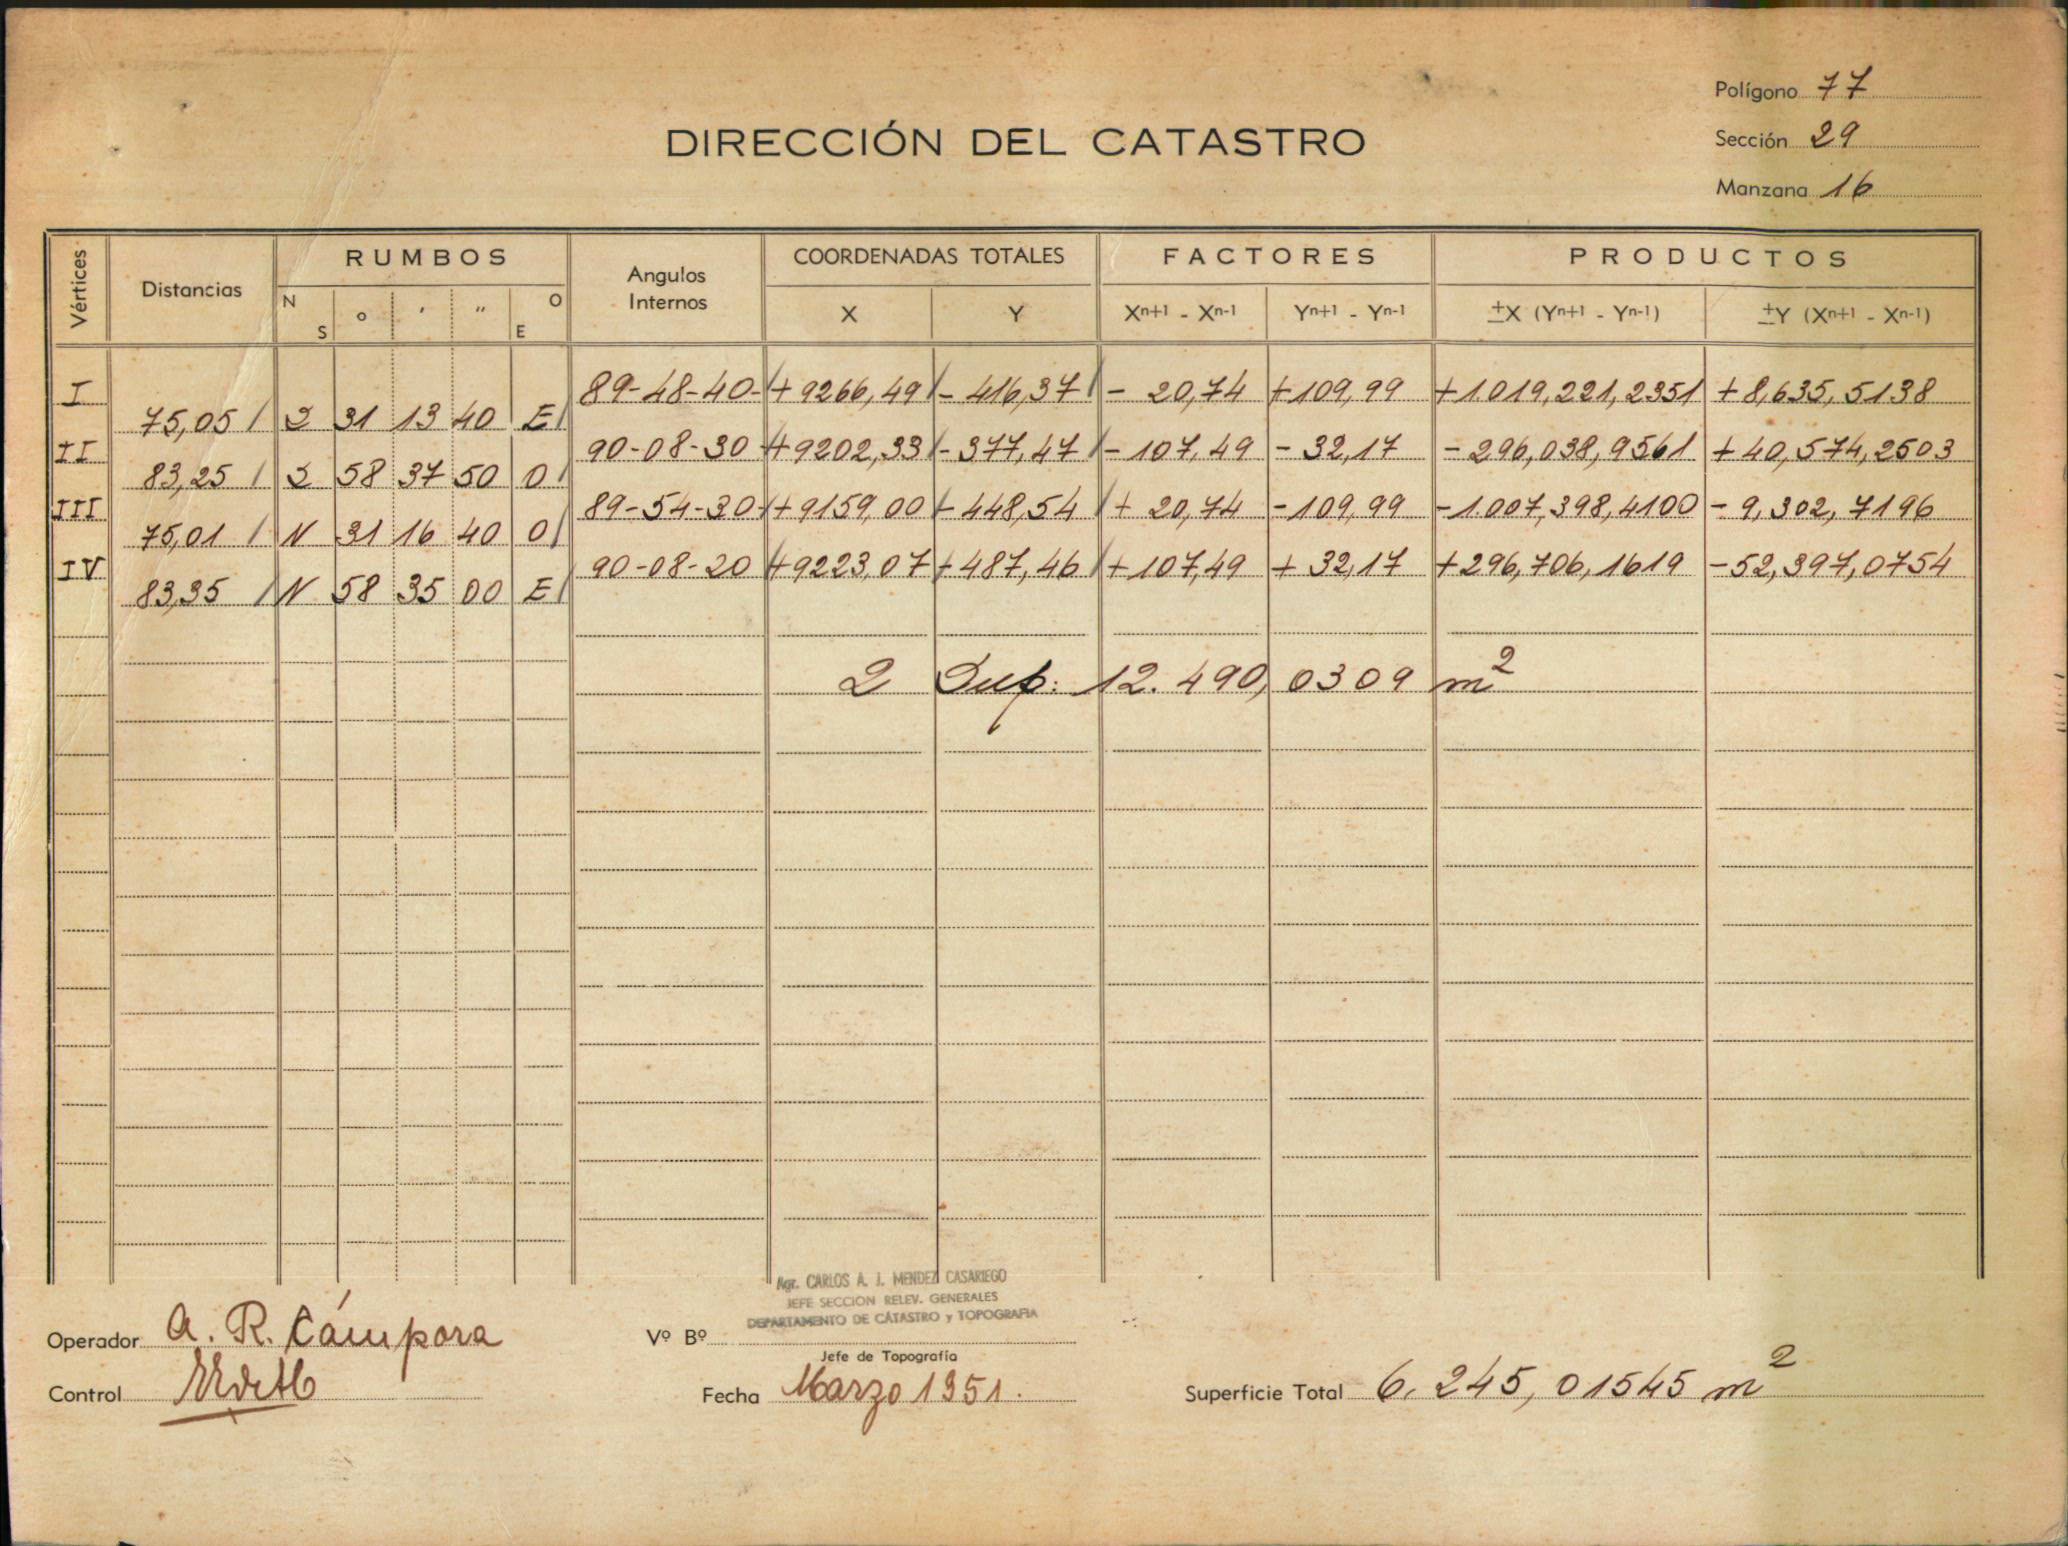 Polígono 77
DIRECCIÓN DEL CATASTRO
Sección 29
Manzana 16
Vértices
Distancias
RUMBOS
N S ° ' " O E
Angulos Internos
COORDENADAS TOTALES
X Y
FACTORES
Xn+1 - Xn-1 Yn+1 - Yn-1
PRODUCTOS
±X (Yn+1 - Yn-1) ±Y (Xn+1 - Xn-1)
I 89-48-40- +9266,49 - 416,37 - 20,74 +109,99 +1.019,221,2351 +8,635,5138
75,05 S 31 13 40 E
II 90-08-30 +9202,33 - 377,47 - 107,49 - 32,17 - 296,038,9561 + 40,574,2503
83,25 S 58 37 50 O
III 89-54-30 +9159,00 - 448,54 + 20,74 - 109,99 -1.007,398,4100 - 9,302,7196
75,01 N 31 16 40 O
IV 90-08-20 +9223,07 - 487,46 +107,49 + 32,17 +296,706,1619 -52,397,0754
83,35 N 58 35 00 E
2 Sup: 12.490,0309 m²
Agr. CARLOS A. J. MENDEZ CASARIEGO
JEFE SECCION RELEV. GENERALES
DEPARTAMENTO DE CATASTRO y TOPOGRAFIA
Operador A. R. Cámpora
Vº Bº
Jefe de Topografía
Control
Fecha Marzo 1951.
Superficie Total 6.245,01545 m²